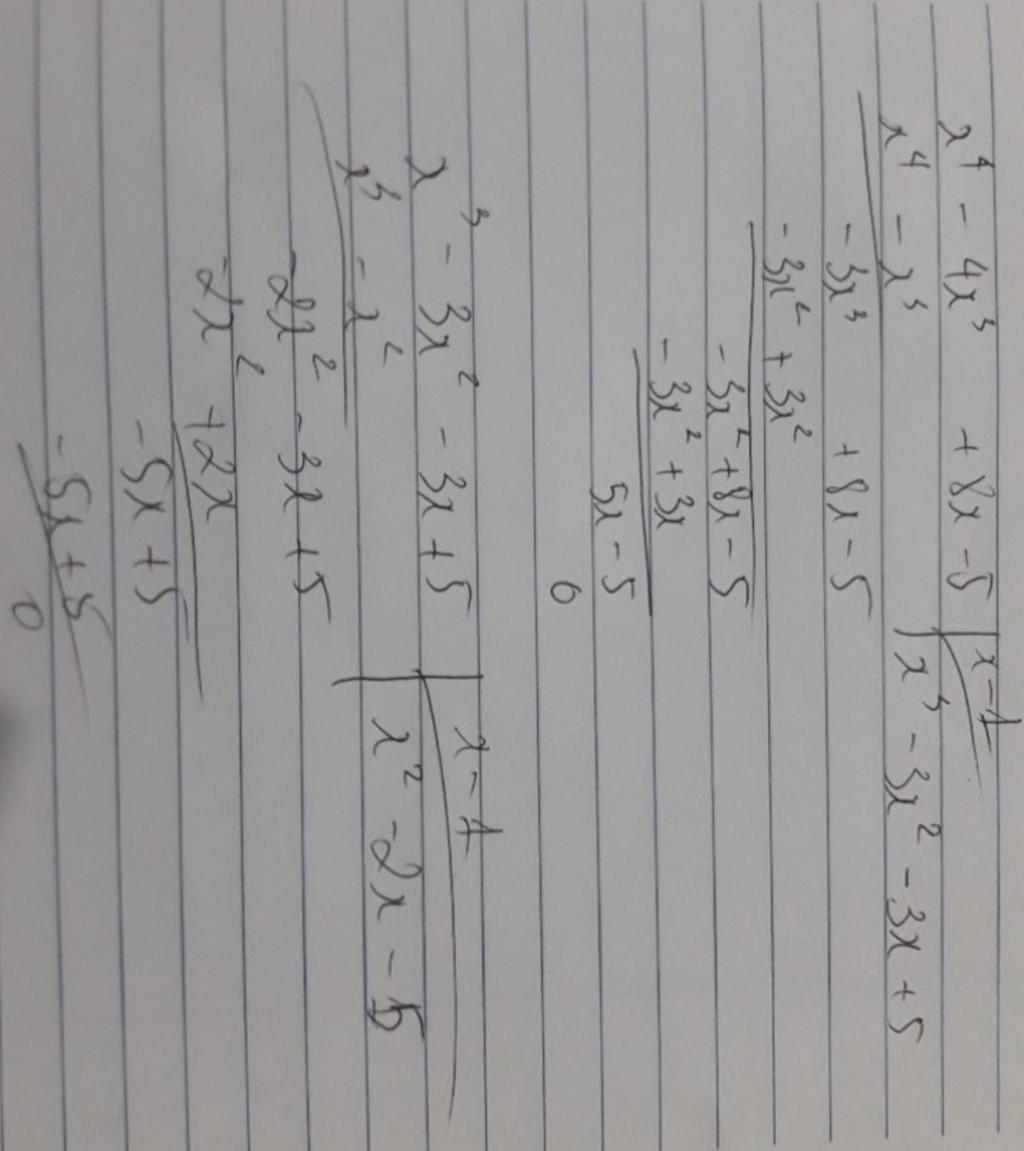 x⁴ - 4x³ + 8x - 5 | x - 1
x⁴ - x³ | x³ - 3x² - 3x + 5
- 3x³ + 8x - 5
- 3x² + 3x²
- 3x² + 8x - 5
- 3x² + 3x
5x - 5
0
x³ - 3x² - 3x + 5 | x - 1
x³ - x² | x² - 2x - 5
-2x² - 3x + 5
-2x² + 2x
- 5x + 5
- 5x + 5
0